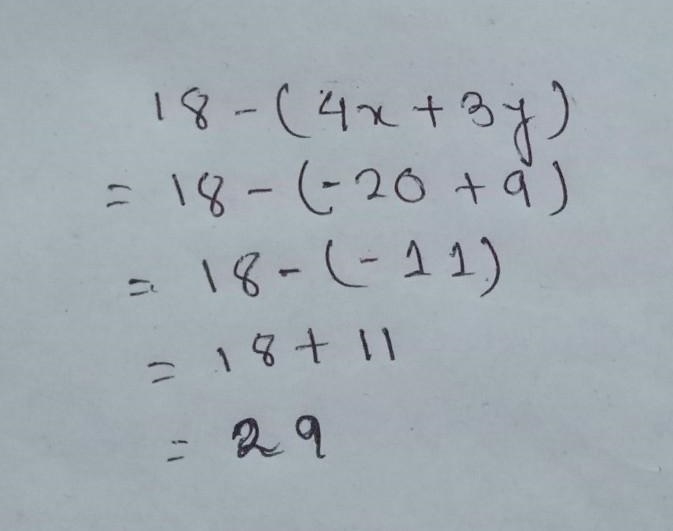 18 - (4x + 3y)
= 18 - (-20 + 9)
= 18 - (-11)
= 18 + 11
= 29